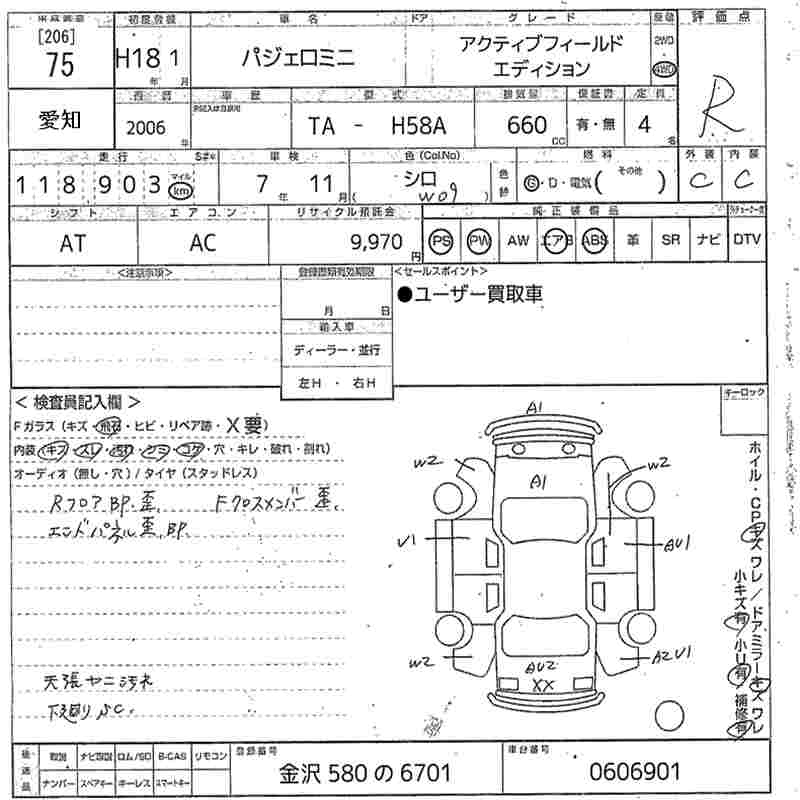 初度登録 車名 ドア グレード 評価点
[206] 75
H18年 1月 パジェロミニ アクティブフィールド エディション 2WD 4WD R
愛知
車歴 型式 排気量 保証書 定員
2006年 TA - H58A 660cc 有・無 4名
走行 S#* 車検 色(Col.No) 燃料 その他 外装 内装
118,903 マイル km 7年 11月 シロ ( W09 ) 色 G・D・電気( ) C C
シフト エアコン リサイクル預託金 純正装備品
AT AC 9,970円 PS PW AW エアB ABS 革 SR ナビ DTV
<注意事項> 登録書類有効期限 <セールスポイント>
月 日 ●ユーザー買取車
輸入車
ディーラー・並行
左H ・ 右H
< 検査員記入欄 > キーロック
Fガラス(キズ・飛石・ヒビ・リペア跡・X要)
内装(キズ・スレ・汚れ・シミ・コゲ・穴・キレ・破れ・割れ)
オーディオ(無し・穴) / タイヤ(スタッドレス)
RフロアBP.歪. Fクロスメンバー歪.
エンドパネル歪.BP.
天張ヤニ汚れ
下廻りSC.
A1
W2 A1 W2
U1 AU1
W2 AU2 A2U1
XX
ホイル・CPキズワレ/ドアミラーキズワレ
小キズ有/小U有/補修有
後送品 取説 ナビ取説 ロム/SD B-CAS リモコン 登録番号 車台番号
ナンバー スペアキー キーレス スマートキー 金沢 580 の 6701 0606901